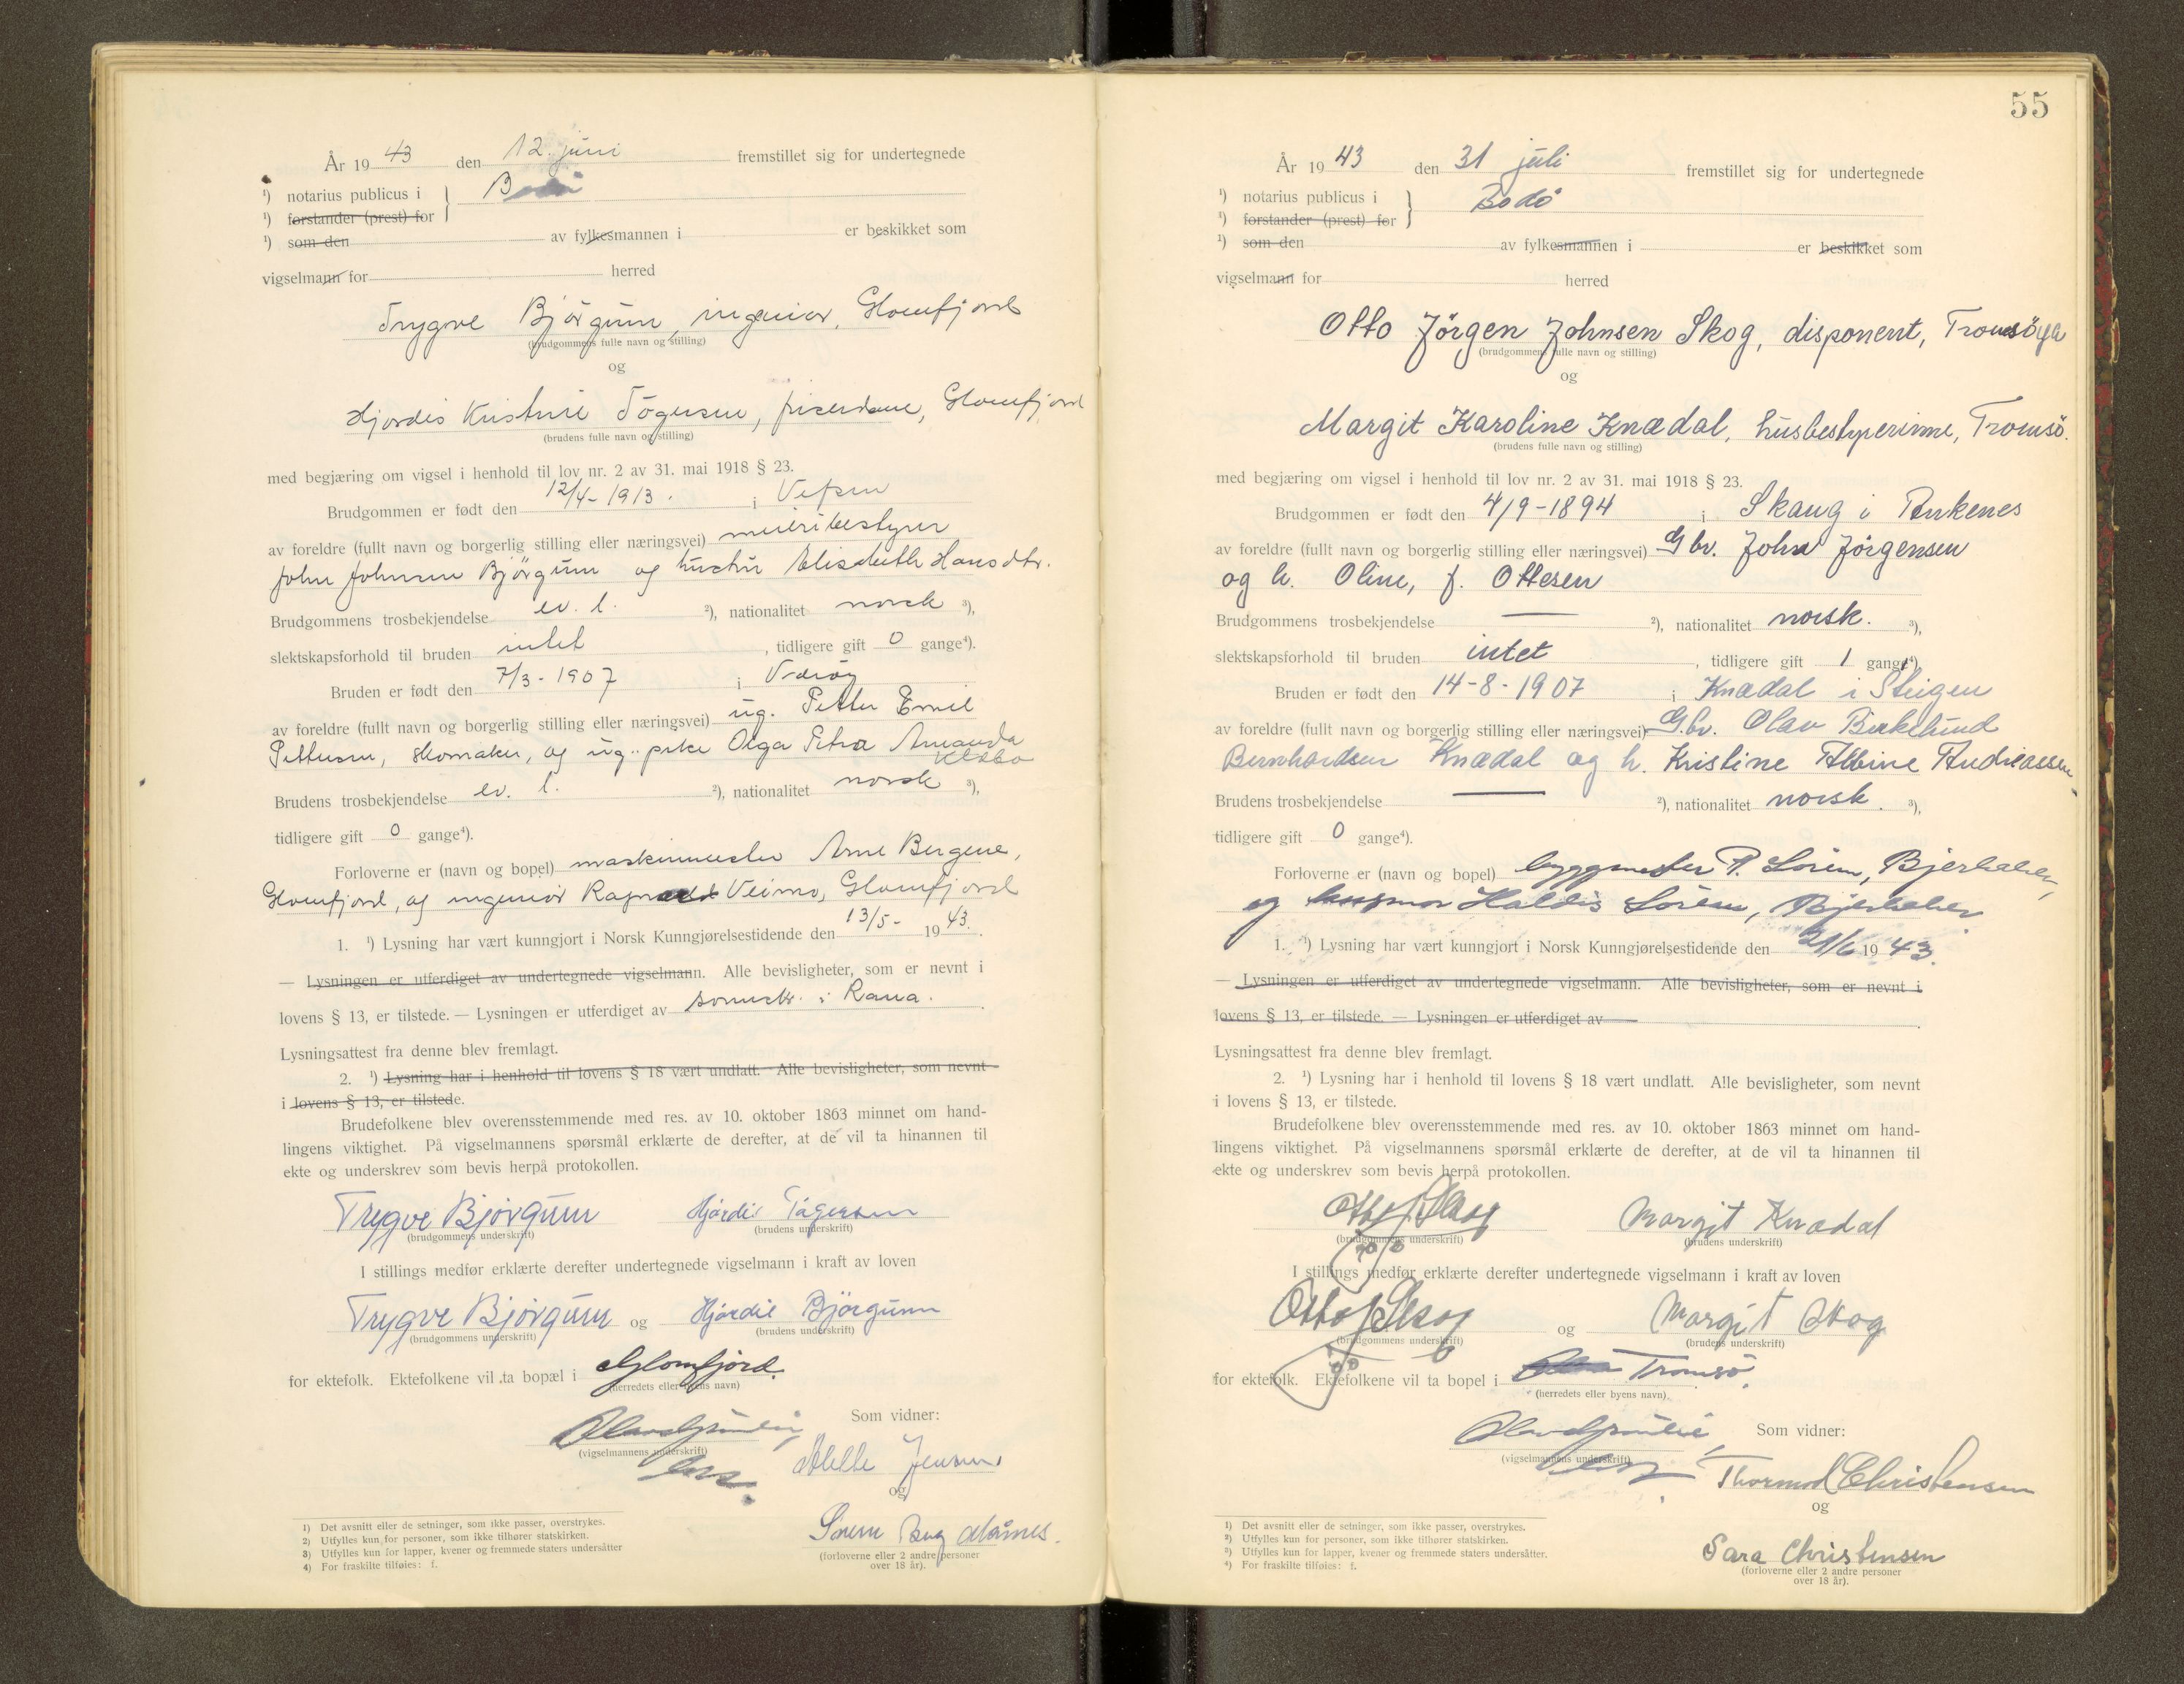 År 19 43 den 12. juni fremstillet sig for undertegnede
¹) notarius publicus i Bodö
¹) forstander (prest) for
¹) som den av fylkesmannen i er beskikket som
vigselmann for herred
Trygve Bjørgum, ingeniør, Glomfjord
(brudgommens fulle navn og stilling)
og
Hjordis Kristine Tögersen, friserdame, Glomfjord
(brudens fulle navn og stilling)
med begjæring om vigsel i henhold til lov nr. 2 av 31. mai 1918 § 23.
Brudgommen er født den 12/4-1913. i Vefsn
av foreldre (fullt navn og borgerlig stilling eller næringsvei) meieribestyrer
John Johnsen Bjørgum og hustru Elisabeth Hansdtr.
Brudgommens trosbekjendelse ev. l. ²), nationalitet norsk ³),
slektskapsforhold til bruden intet, tidligere gift 0 gange⁴).
Bruden er født den 7/3-1907 i Værøy
av foreldre (fullt navn og borgerlig stilling eller næringsvei) ug. Petter Emil
Pettersen, skomaker, og ug. pike Olga Petra Amanda
Brudens trosbekjendelse ev. l. ²), nationalitet norsk ³),
tidligere gift 0 gange⁴).
Forloverne er (navn og bopel) maskinmester Arne Bergene,
Glomfjord, og ingeniør Veimo, Glomfjord
1. ¹) Lysning har vært kunngjort i Norsk Kunngjørelsestidende den 13/5- 1943.
— Lysningen er utferdiget av undertegnede vigselmann. Alle bevisligheter, som er nevnt i
lovens § 13, er tilstede. — Lysningen er utferdiget av sorenskr. i Rana.
Lysningsattest fra denne blev fremlagt.
2. ¹) Lysning har i henhold til lovens § 18 vært undlatt. Alle bevisligheter, som nevnt
i lovens § 13, er tilstede.
Brudefolkene blev overensstemmende med res. av 10. oktober 1863 minnet om hand-
lingens viktighet. På vigselmannens spørsmål erklærte de derefter, at de vil ta hinannen til
ekte og underskrev som bevis herpå protokollen.
Trygve Bjørgum Hjördis Tögersen
(brudgommens underskrift) (brudens underskrift)
I stillings medfør erklærte derefter undertegnede vigselmann i kraft av loven
Trygve Bjørgum og Hjördis Bjørgum
(brudgommens underskrift) (brudens underskrift)
for ektefolk. Ektefolkene vil ta bopæl i Glomfjord.
(herredets eller byens navn)
Som vidner:
(vigselmannens underskrift)
Jensen
og
(forloverne eller 2 andre personer
over 18 år).
1) Det avsnitt eller de setninger, som ikke passer, overstrykes.
2) Utfylles kun for personer, som ikke tilhører statskirken.
3) Utfylles kun for lapper, kvener og fremmede staters undersåtter
4) For fraskilte tilføies: f.
55
År 19 43 den 31 juli fremstillet sig for undertegnede
¹) notarius publicus i Bodö
¹) forstander (prest) for
¹) som den av fylkesmannen i er beskikket som
vigselmann for herred
Otto Jörgen Johnsen Skog, disponent, Tromsö
(brudgommens fulle navn og stilling)
og
Margit Karoline Knædal, husbestyrerinne, Tromsö.
(brudens fulle navn og stilling)
med begjæring om vigsel i henhold til lov nr. 2 av 31. mai 1918 § 23.
Brudgommen er født den 4/9-1894 i Skaug i Ankenes
av foreldre (fullt navn og borgerlig stilling eller næringsvei) Gbr. John Jörgensen
og h. Oline, f. Ottesen
Brudgommens trosbekjendelse — ²), nationalitet norsk. ³),
slektskapsforhold til bruden intet, tidligere gift 1 gang⁴),
Bruden er født den 14-8-1907 i Knædal i Steigen
av foreldre (fullt navn og borgerlig stilling eller næringsvei) Gbr. Olav Birkelund
Bernhardsen Knædal og h. Kristine Albine Andreassen.
Brudens trosbekjendelse — ²), nationalitet norsk. ³),
tidligere gift 0 gange⁴).
Forloverne er (navn og bopel) byggmester P. Sörem,
og husmor Haldis Sörem,
1. ¹) Lysning har vært kunngjort i Norsk Kunngjørelsestidende den 21/6 1943.
— Lysningen er utferdiget av undertegnede vigselmann. Alle bevisligheter, som er nevnt i
lovens § 13, er tilstede. — Lysningen er utferdiget av
Lysningsattest fra denne blev fremlagt.
2. ¹) Lysning har i henhold til lovens § 18 vært undlatt. Alle bevisligheter, som nevnt
i lovens § 13, er tilstede.
Brudefolkene blev overensstemmende med res. av 10. oktober 1863 minnet om hand-
lingens viktighet. På vigselmannens spørsmål erklærte de derefter, at de vil ta hinannen til
ekte og underskrev som bevis herpå protokollen.
Otto J Skog Margit Knædal
(brudgommens underskrift) (brudens underskrift)
I stillings medfør erklærte derefter undertegnede vigselmann i kraft av loven
Otto J Skog og Margit Skog
(brudgommens underskrift) (brudens underskrift)
for ektefolk. Ektefolkene vil ta bopel i Tromsö.
(herredets eller byens navn).
Som vidner:
(vigselmannens underskrift)
Thormod Christensen
og
Sara Christensen
(forloverne eller 2 andre personer
over 18 år).
¹) Det avsnitt eller de setninger, som ikke passer, overstrykes.
²) Utfylles kun for personer, som ikke tilhører statskirken.
³) Utfylles kun for lapper, kvener og fremmede staters undersåtter.
⁴) For fraskilte tilføies: f.